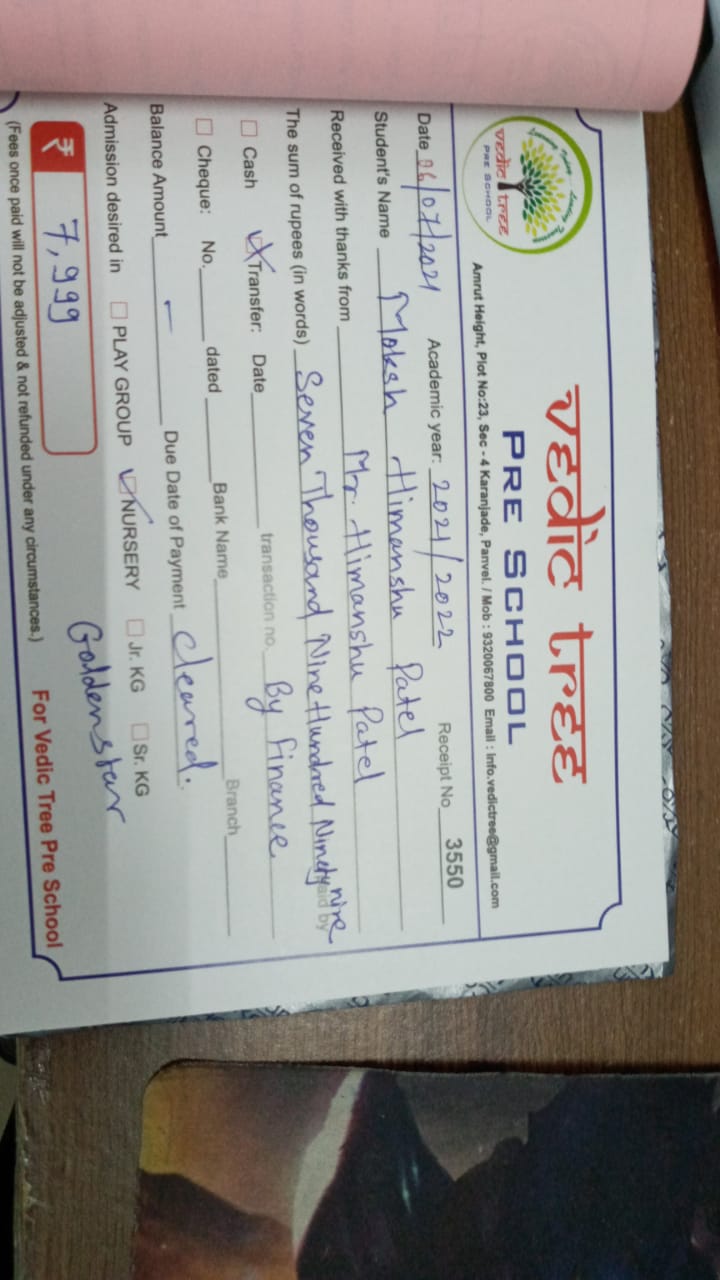 vedic tree
PRE SCHOOL
vedic tree
PRE SCHOOL
Amrut Height, Plot No:23, Sec - 4 Karanjade, Panvel. / Mob : 9320067800 Email : Info.vedictree@gmail.com
Date 06/07/2021 Academic year: 2021/2022 Receipt No 3550
Student's Name Moksh Himanshu Patel
Received with thanks from Mr. Himanshu Patel
The sum of rupees (in words) Seven Thousand Nine Hundred Ninety nine paid by
Cash Transfer: Date transaction no. By finance
Cheque: No. dated Bank Name Branch
Balance Amount - Due Date of Payment Cleared.
Admission desired in PLAY GROUP NURSERY Jr. KG Sr. KG
₹ 7,999 Goldenstar
(Fees once paid will not be adjusted & not refunded under any circumstances.) For Vedic Tree Pre School